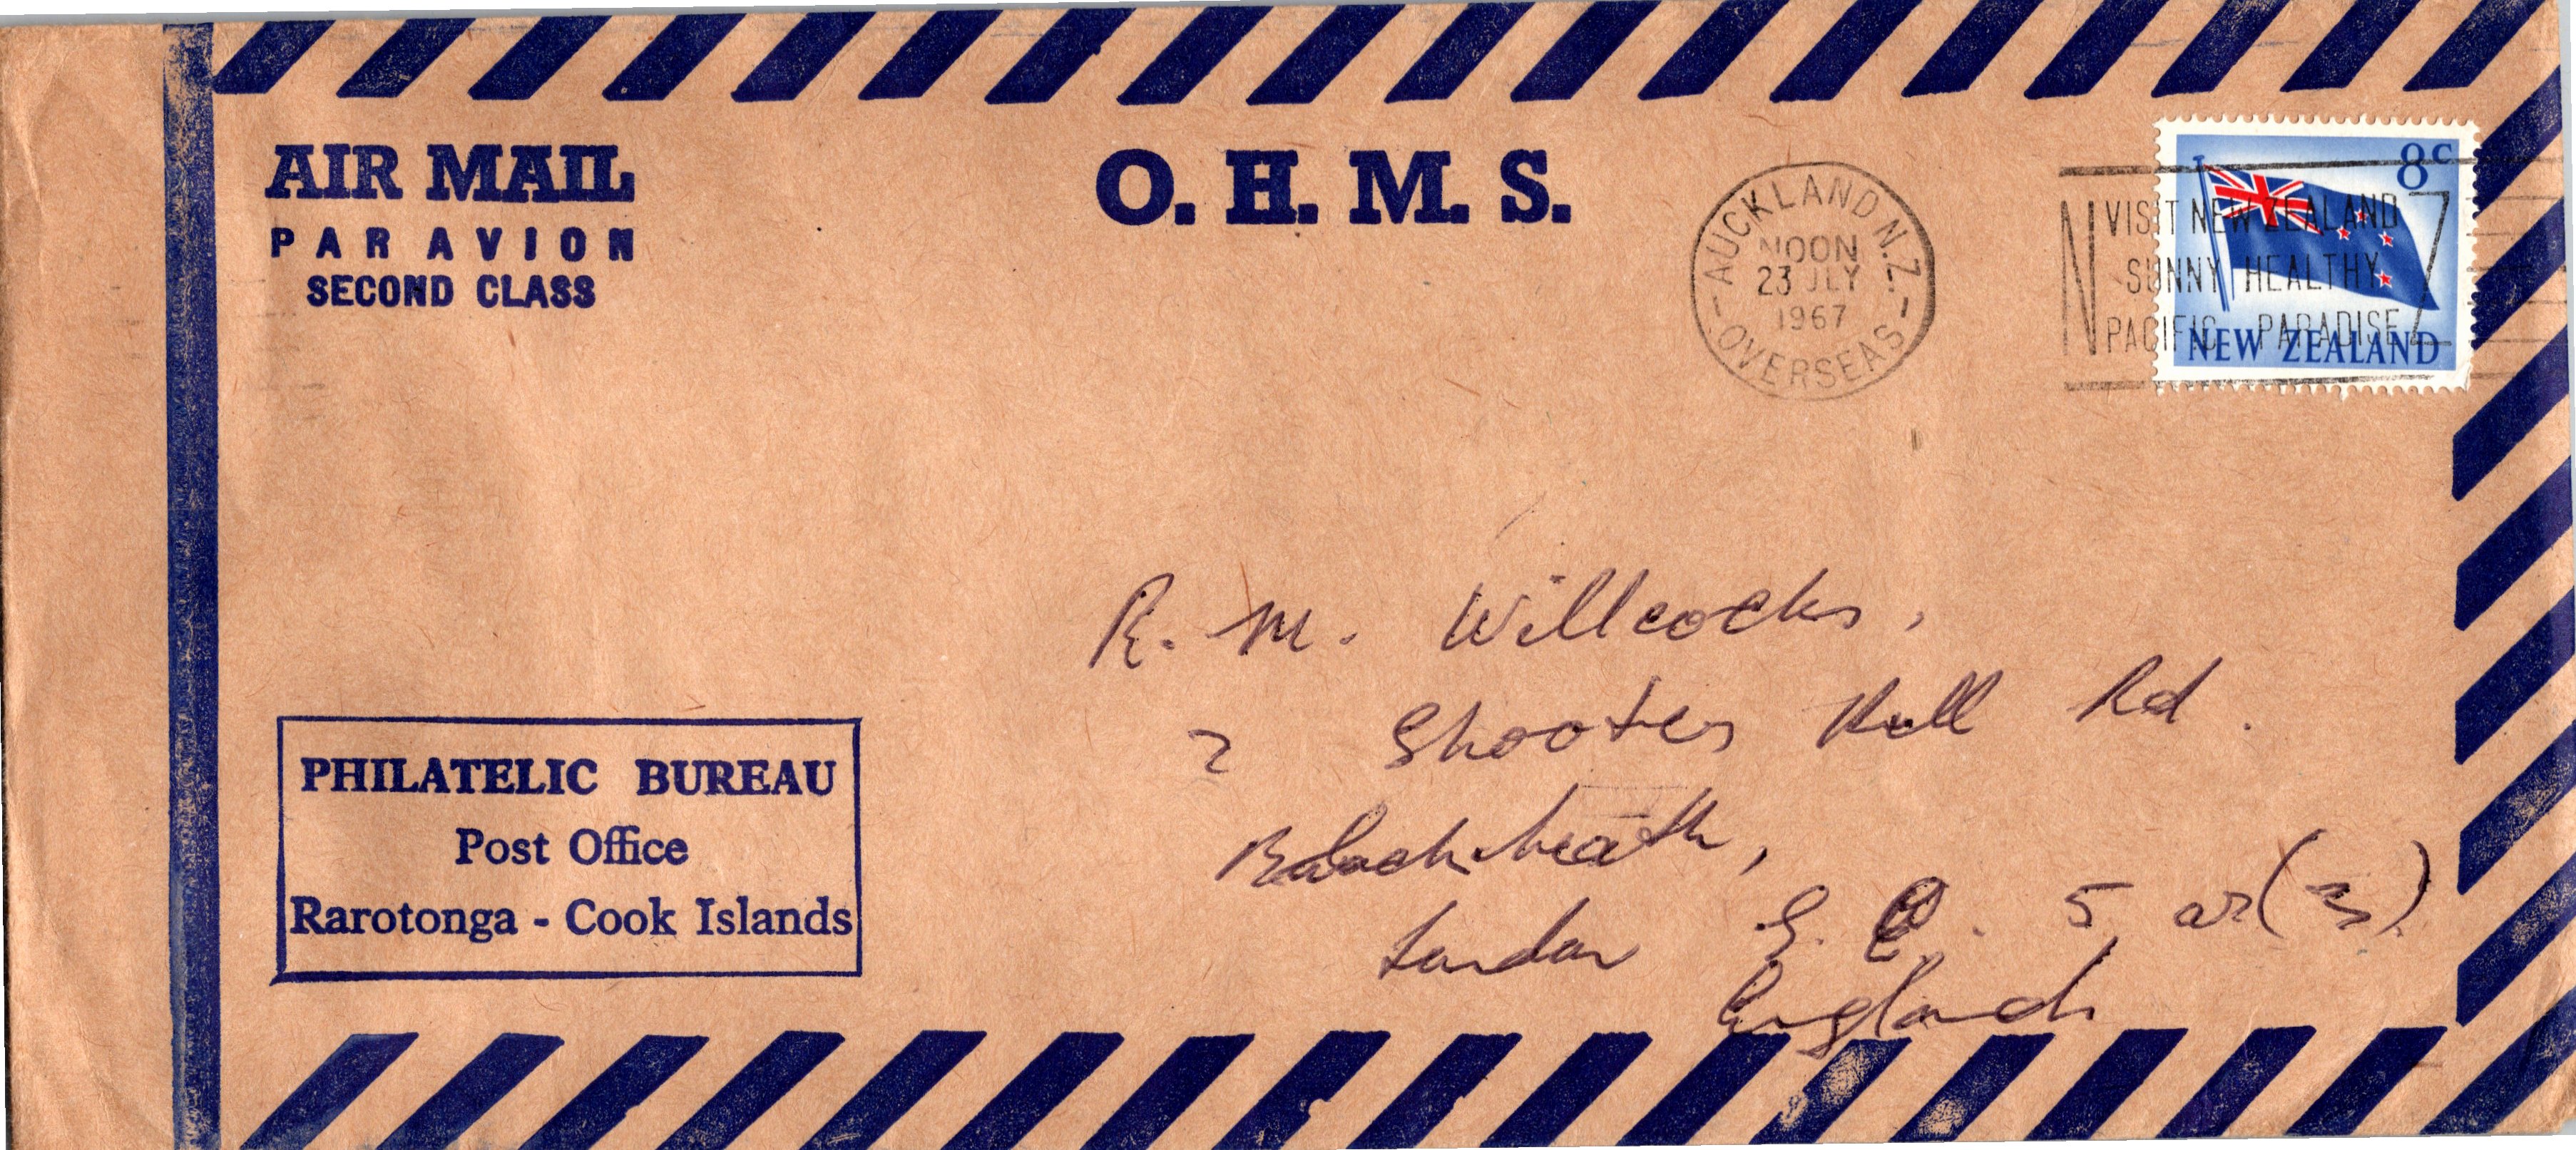 AIR MAIL
PAR AVION
SECOND CLASS
O. H. M. S.
AUCKLAND N.Z.
NOON
23 JLY
1967
OVERSEAS
8c
NEW ZEALAND
N VISIT NEW ZEALAND Z
SUNNY HEALTHY
PACIFIC PARADISE
R. M. Willcocks,
2 Shooters Hill Rd.
Blackheath,
London S. E. 5 or (3)
England
PHILATELIC BUREAU
Post Office
Rarotonga - Cook Islands